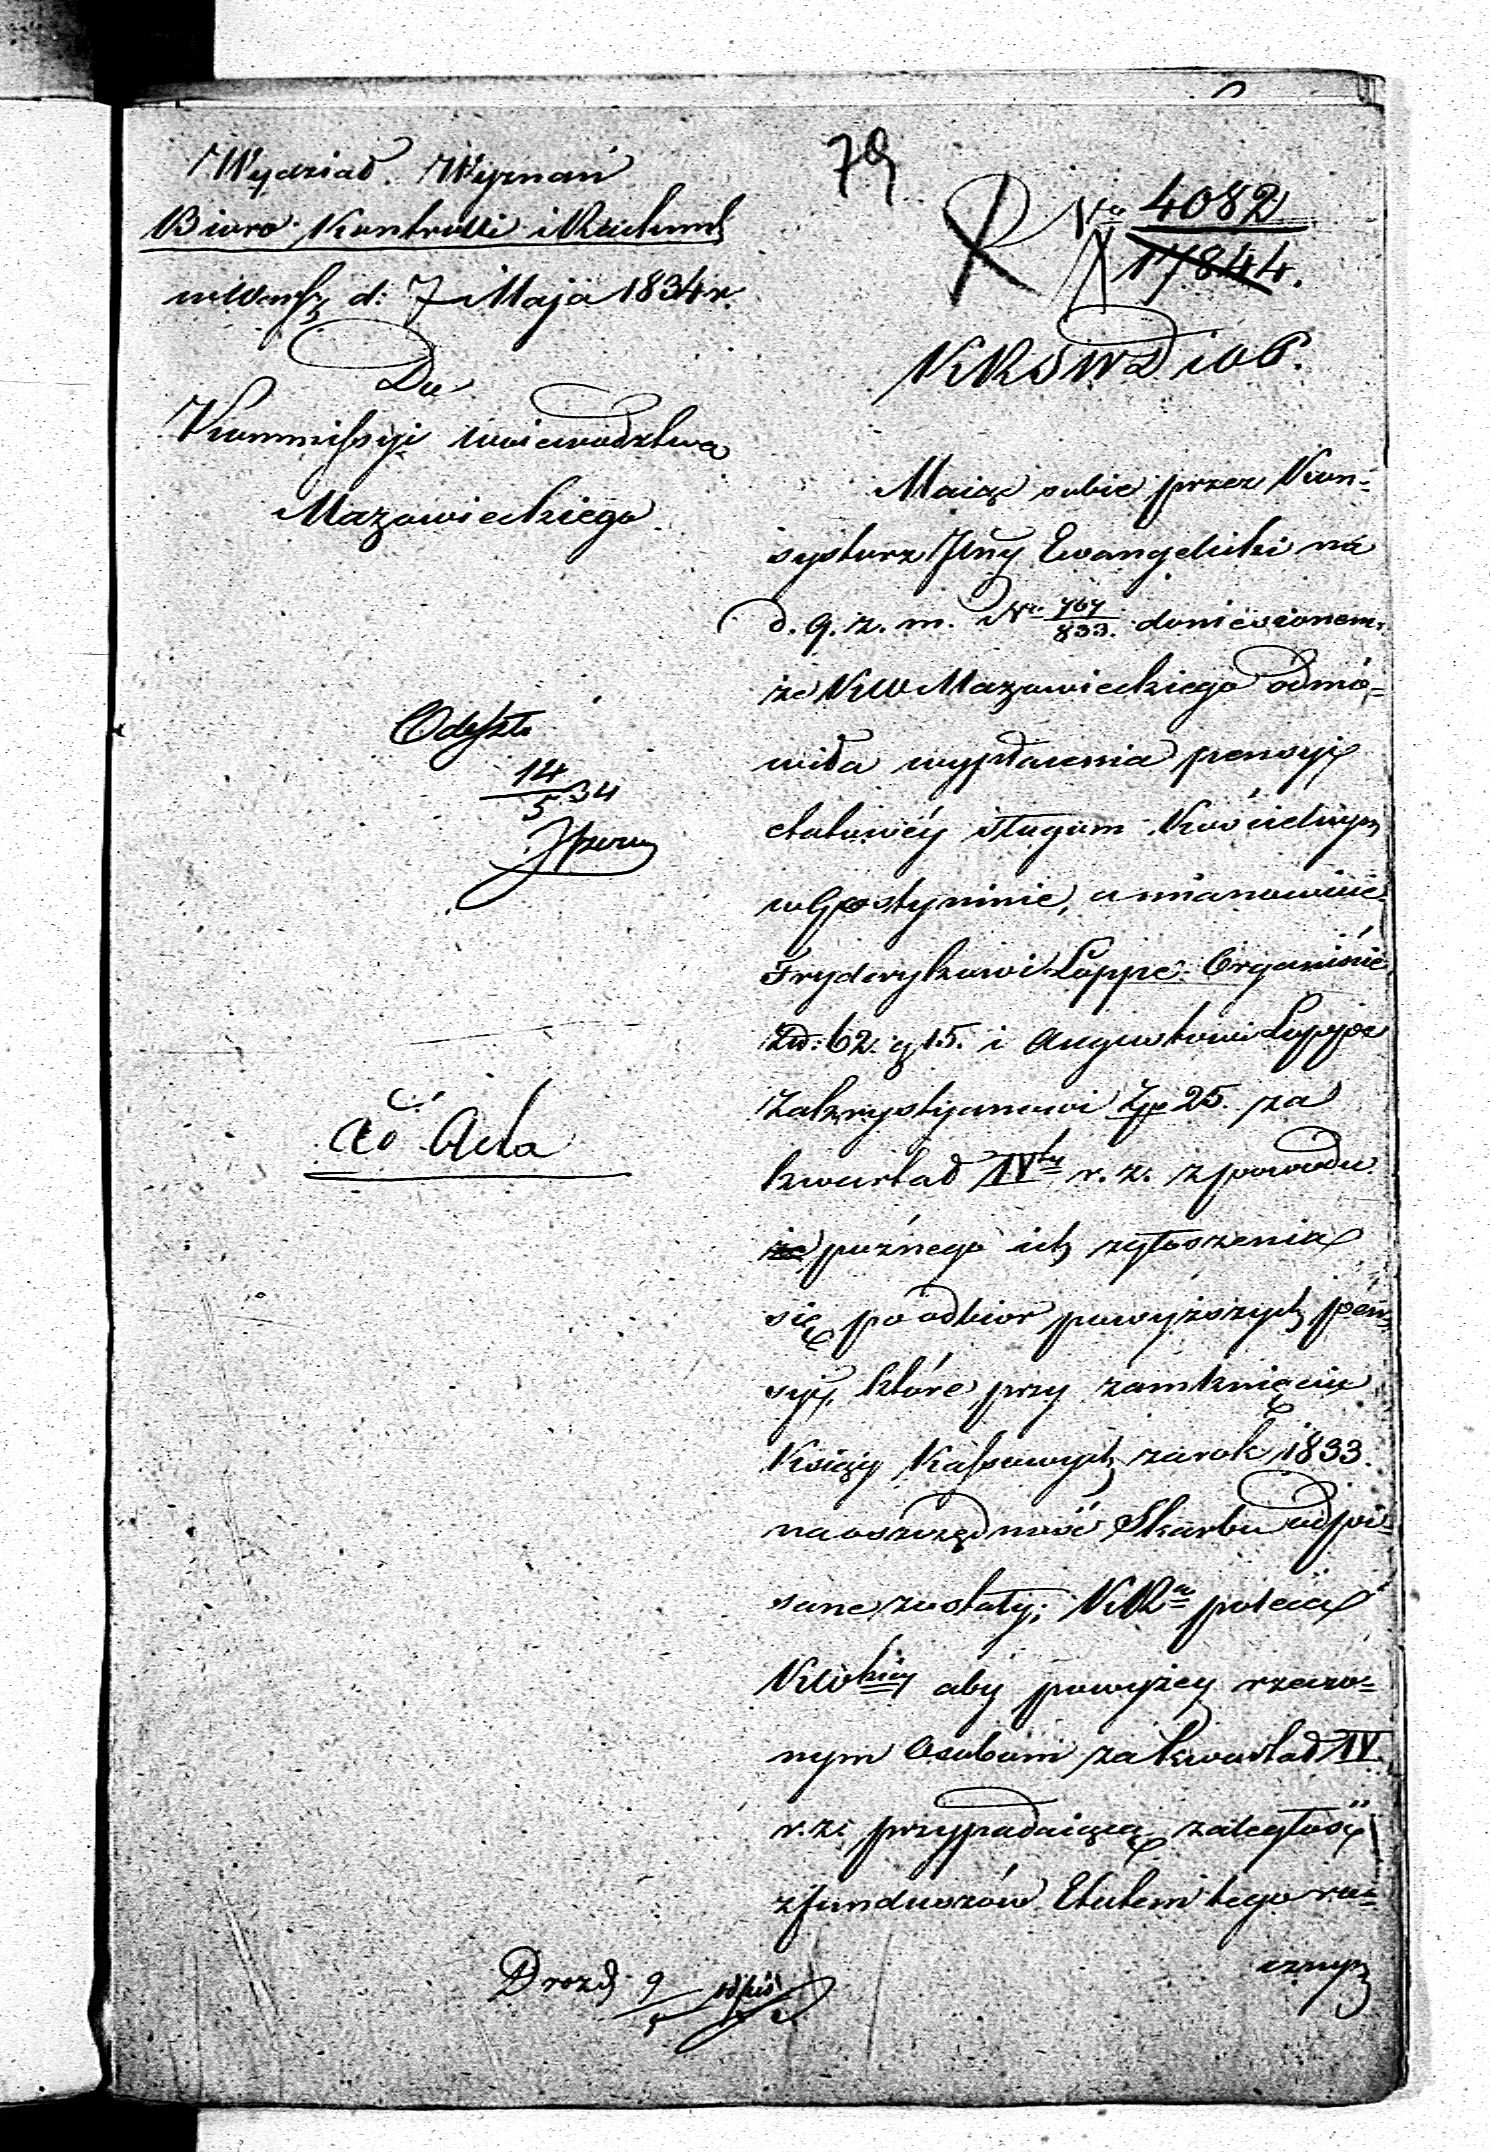 79
Wydział Wyznań
Biuro Kontrolli i Rachunk
w Warsz d: 7 Maja 1834 r.
Do
Kommissyi Woiewodztwa
Mazowieckiego
Odeszło
14/5 34
ad Acta
R No 4082/17844.
KRSWD i OP.
Maiąc sobie przez Kon-
systorz Jlny Ewangelicki na
d. 9. z. m. No 767/833. doniesionem,
że KW Mazowieckiego odmó-
wiła wypłacenia pensyi
etatowéy sługom Kościelnym
w Gostyninie, a mianowicie
Fryderykowi Loppe Organiście
Złł: 62. g 15. i Augustowi Loppe
Zakrystyanowi Złp 25. za
kwartał IVty r. z. z powodu
że późnego ich zgłoszenia
się po odbior powyższych pen-
syi, które przy zamknięciu
Księgi Kassowych za rok 1833.
na oszczędność Skarbu odpi-
sane zostały; KRa poleca
KWkiey aby powyżey rzeczo-
nym Osobom za kwartał IV.
r. z. przypadaiącą zaległość
z funduszów Etatem tego ro-
cznym
Drozd 9/5